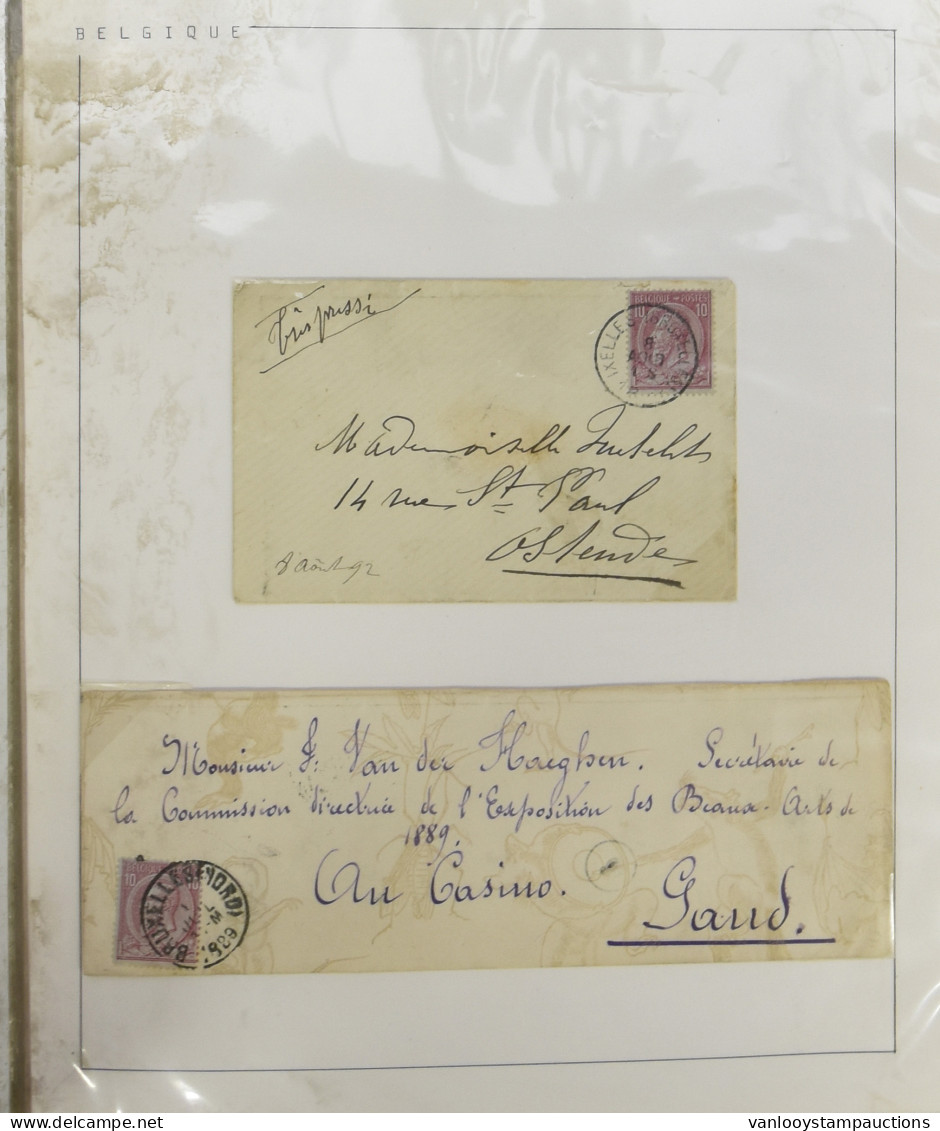 BELGIQUE
Très pressé
BELGIQUE POSTES
10 10
IXELLES
8
AOUT
Mademoiselle
14 rue St Paul
Ostende
8 Août 92
Monsieur F. Van der Haeghen. Secrétaire de
la Commission directrice de l'Exposition des Beaux-Arts de
1889.
Au Casino. Gand.
BELGIQUE
10
BRUXELLES (NORD)
1889
vanlooystampauctions